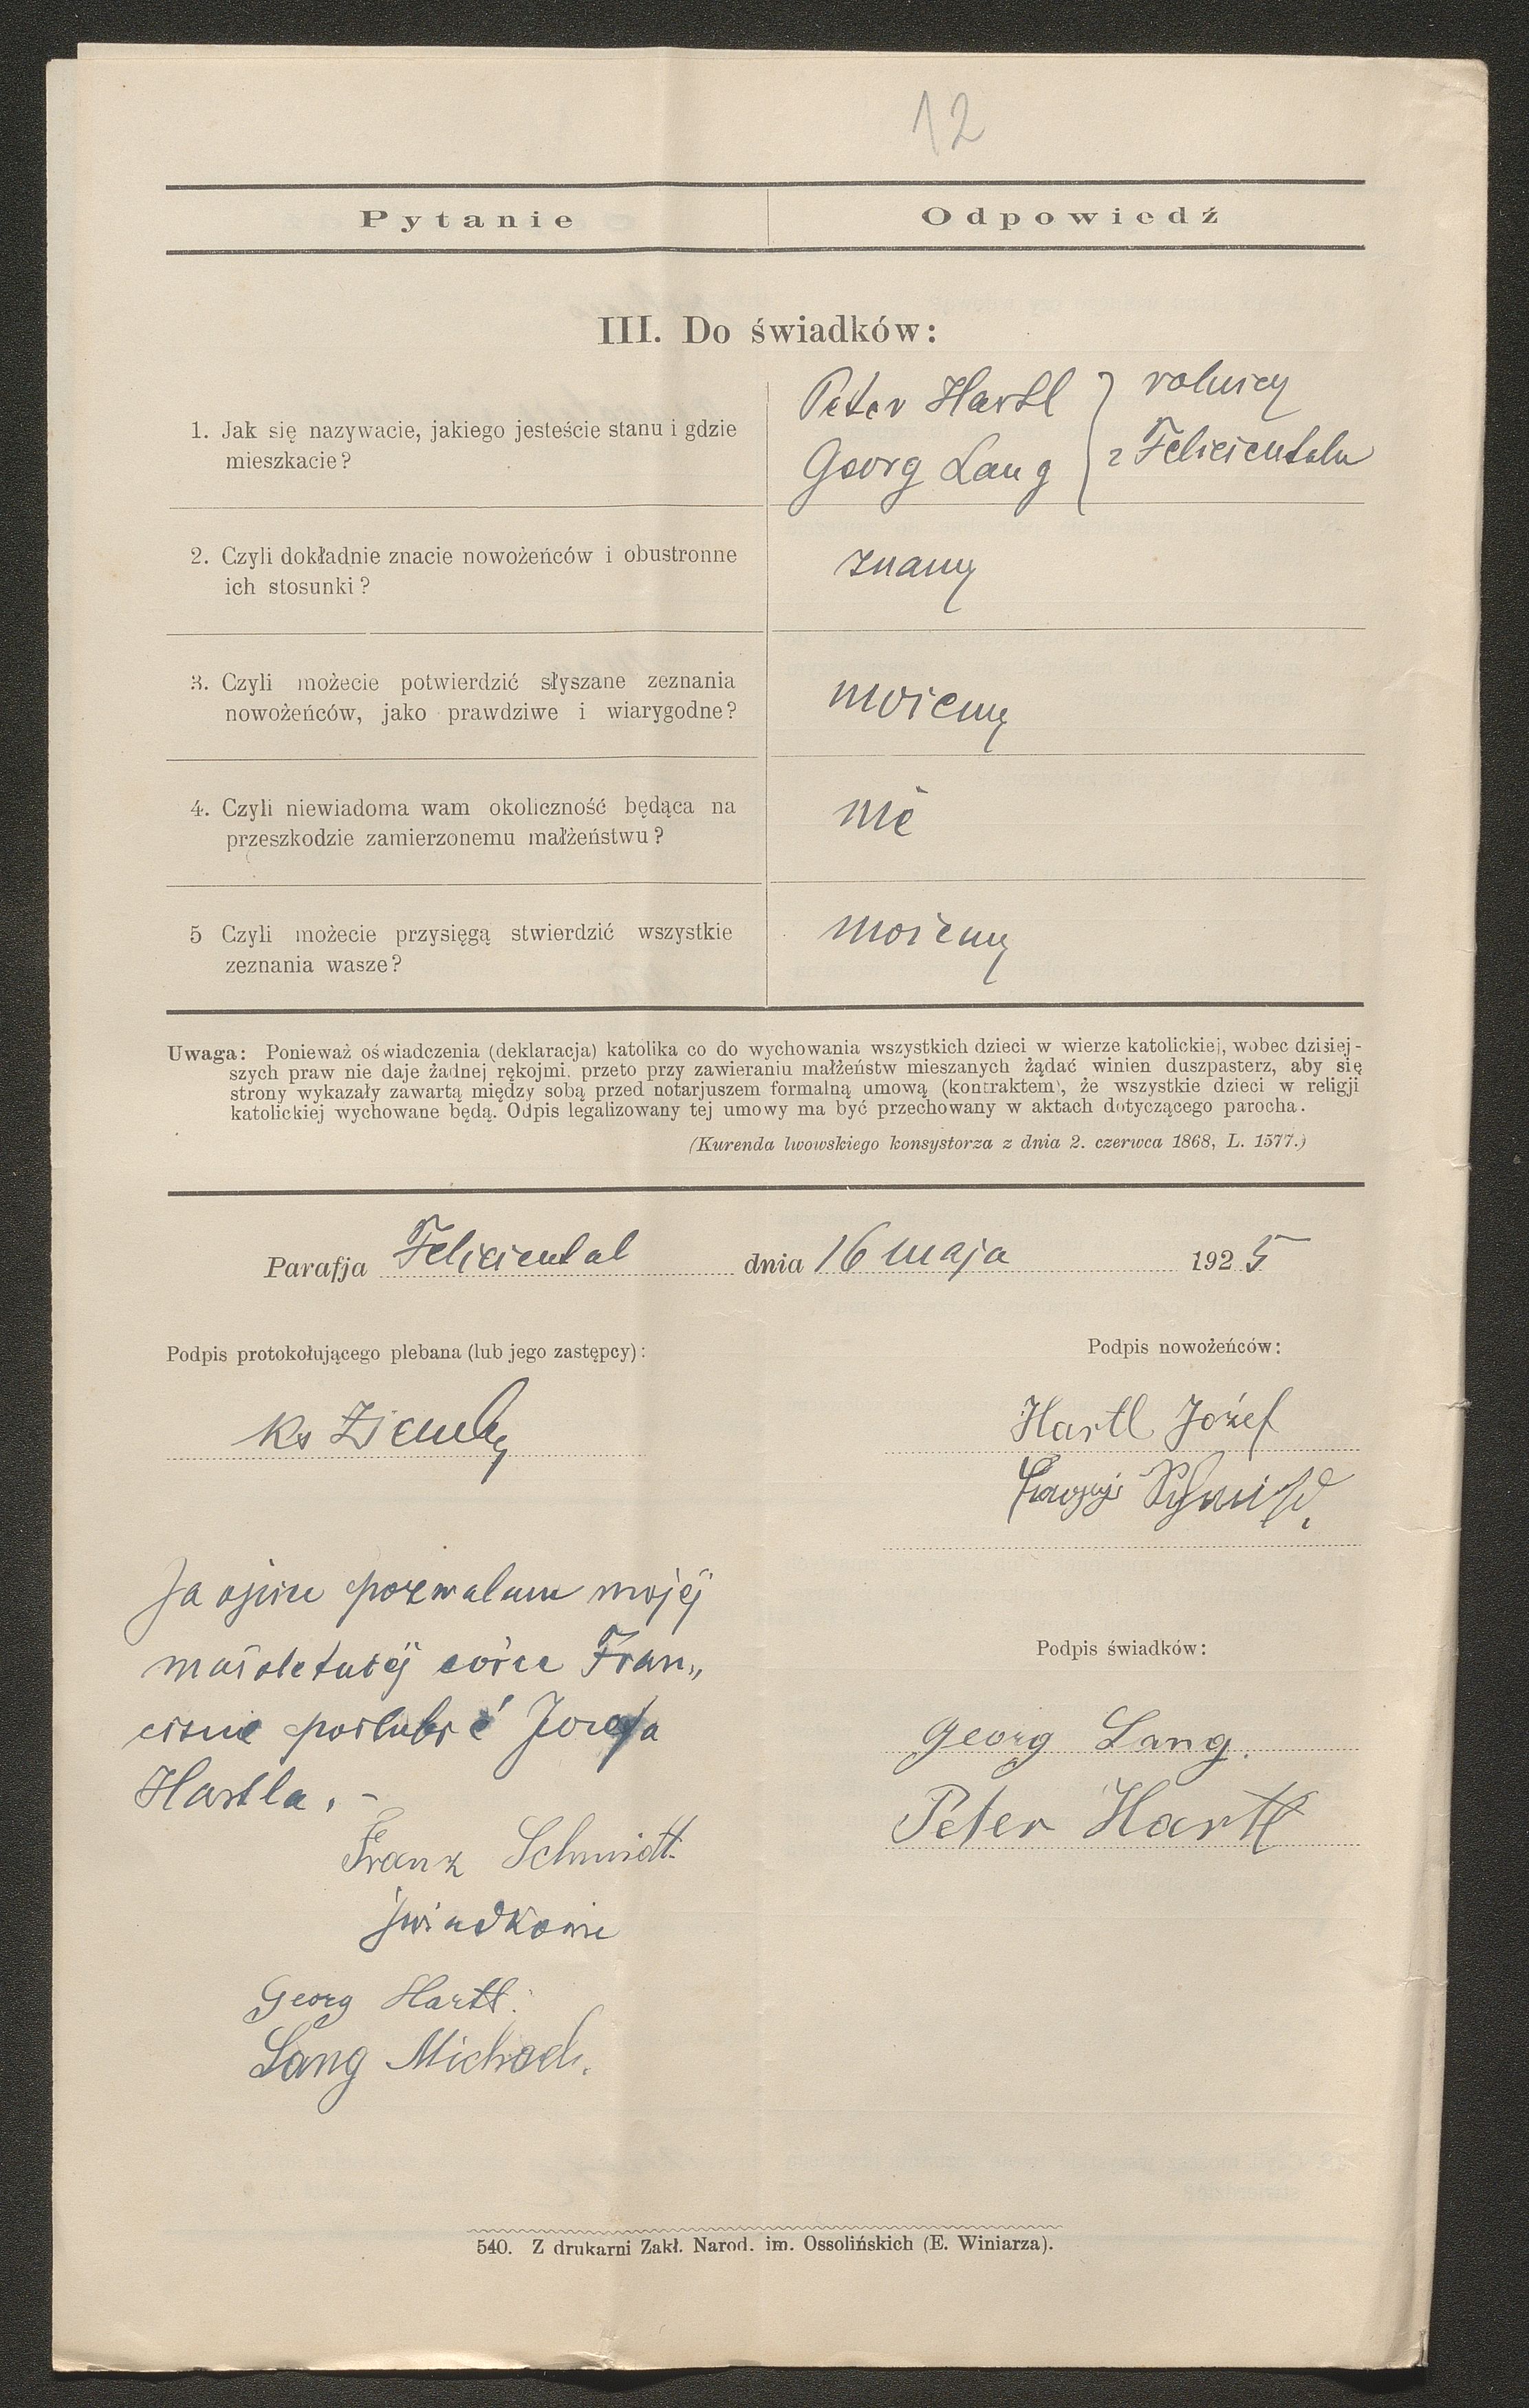 12
Pytanie Odpowiedź
III. Do świadków:
1. Jak się nazywacie, jakiego jesteście stanu i gdzie
mieszkacie?
Peter Hartl } rolnicy
Georg Lang } z Felicientalu
2. Czyli dokładnie znacie nowożeńców i obustronne
ich stosunki?
znamy
3. Czyli możecie potwierdzić słyszane zeznania
nowożeńców, jako prawdziwe i wiarygodne?
możemy
4. Czyli niewiadoma wam okoliczność będąca na
przeszkodzie zamierzonemu małżeństwu?
nie
5 Czyli możecie przysięgą stwierdzić wszystkie
zeznania wasze?
możemy
Uwaga: Ponieważ oświadczenia (deklaracja) katolika co do wychowania wszystkich dzieci w wierze katolickiej, wobec dzisiej-
szych praw nie daje żadnej rękojmi, przeto przy zawieraniu małżeństw mieszanych żądać winien duszpasterz, aby się
strony wykazały zawartą między sobą przed notarjuszem formalną umową (kontraktem), że wszystkie dzieci w religji
katolickiej wychowane będą. Odpis legalizowany tej umowy ma być przechowany w aktach dotyczącego parocha.
(Kurenda lwowskiego konsystorza z dnia 2. czerwca 1868, L. 1577.)
Parafja Feliciental dnia 16 maja 1925
Podpis protokołującego plebana (lub jego zastępcy):
Ks Ziemby
Podpis nowożeńców:
Hartl Józef
Schmidt
Ja ojciec pozwalam mojej
małoletniej córce Fran„
ciszce poślubić Józefa
Hartla. -
Franz Schmidt.
świadkowie
Georg Hartl.
Lang Michael.
Podpis świadków:
Georg Lang.
Peter Hartl
540. Z drukarni Zakł. Narod. im. Ossolińskich (E. Winiarza).